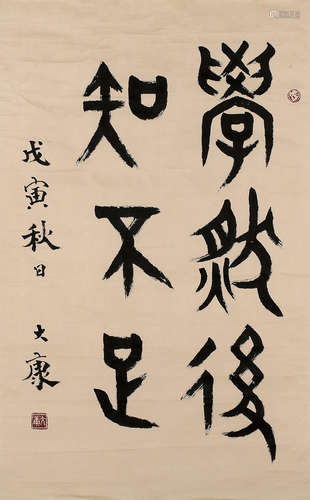 學然後
知不足
戊寅秋日 大康